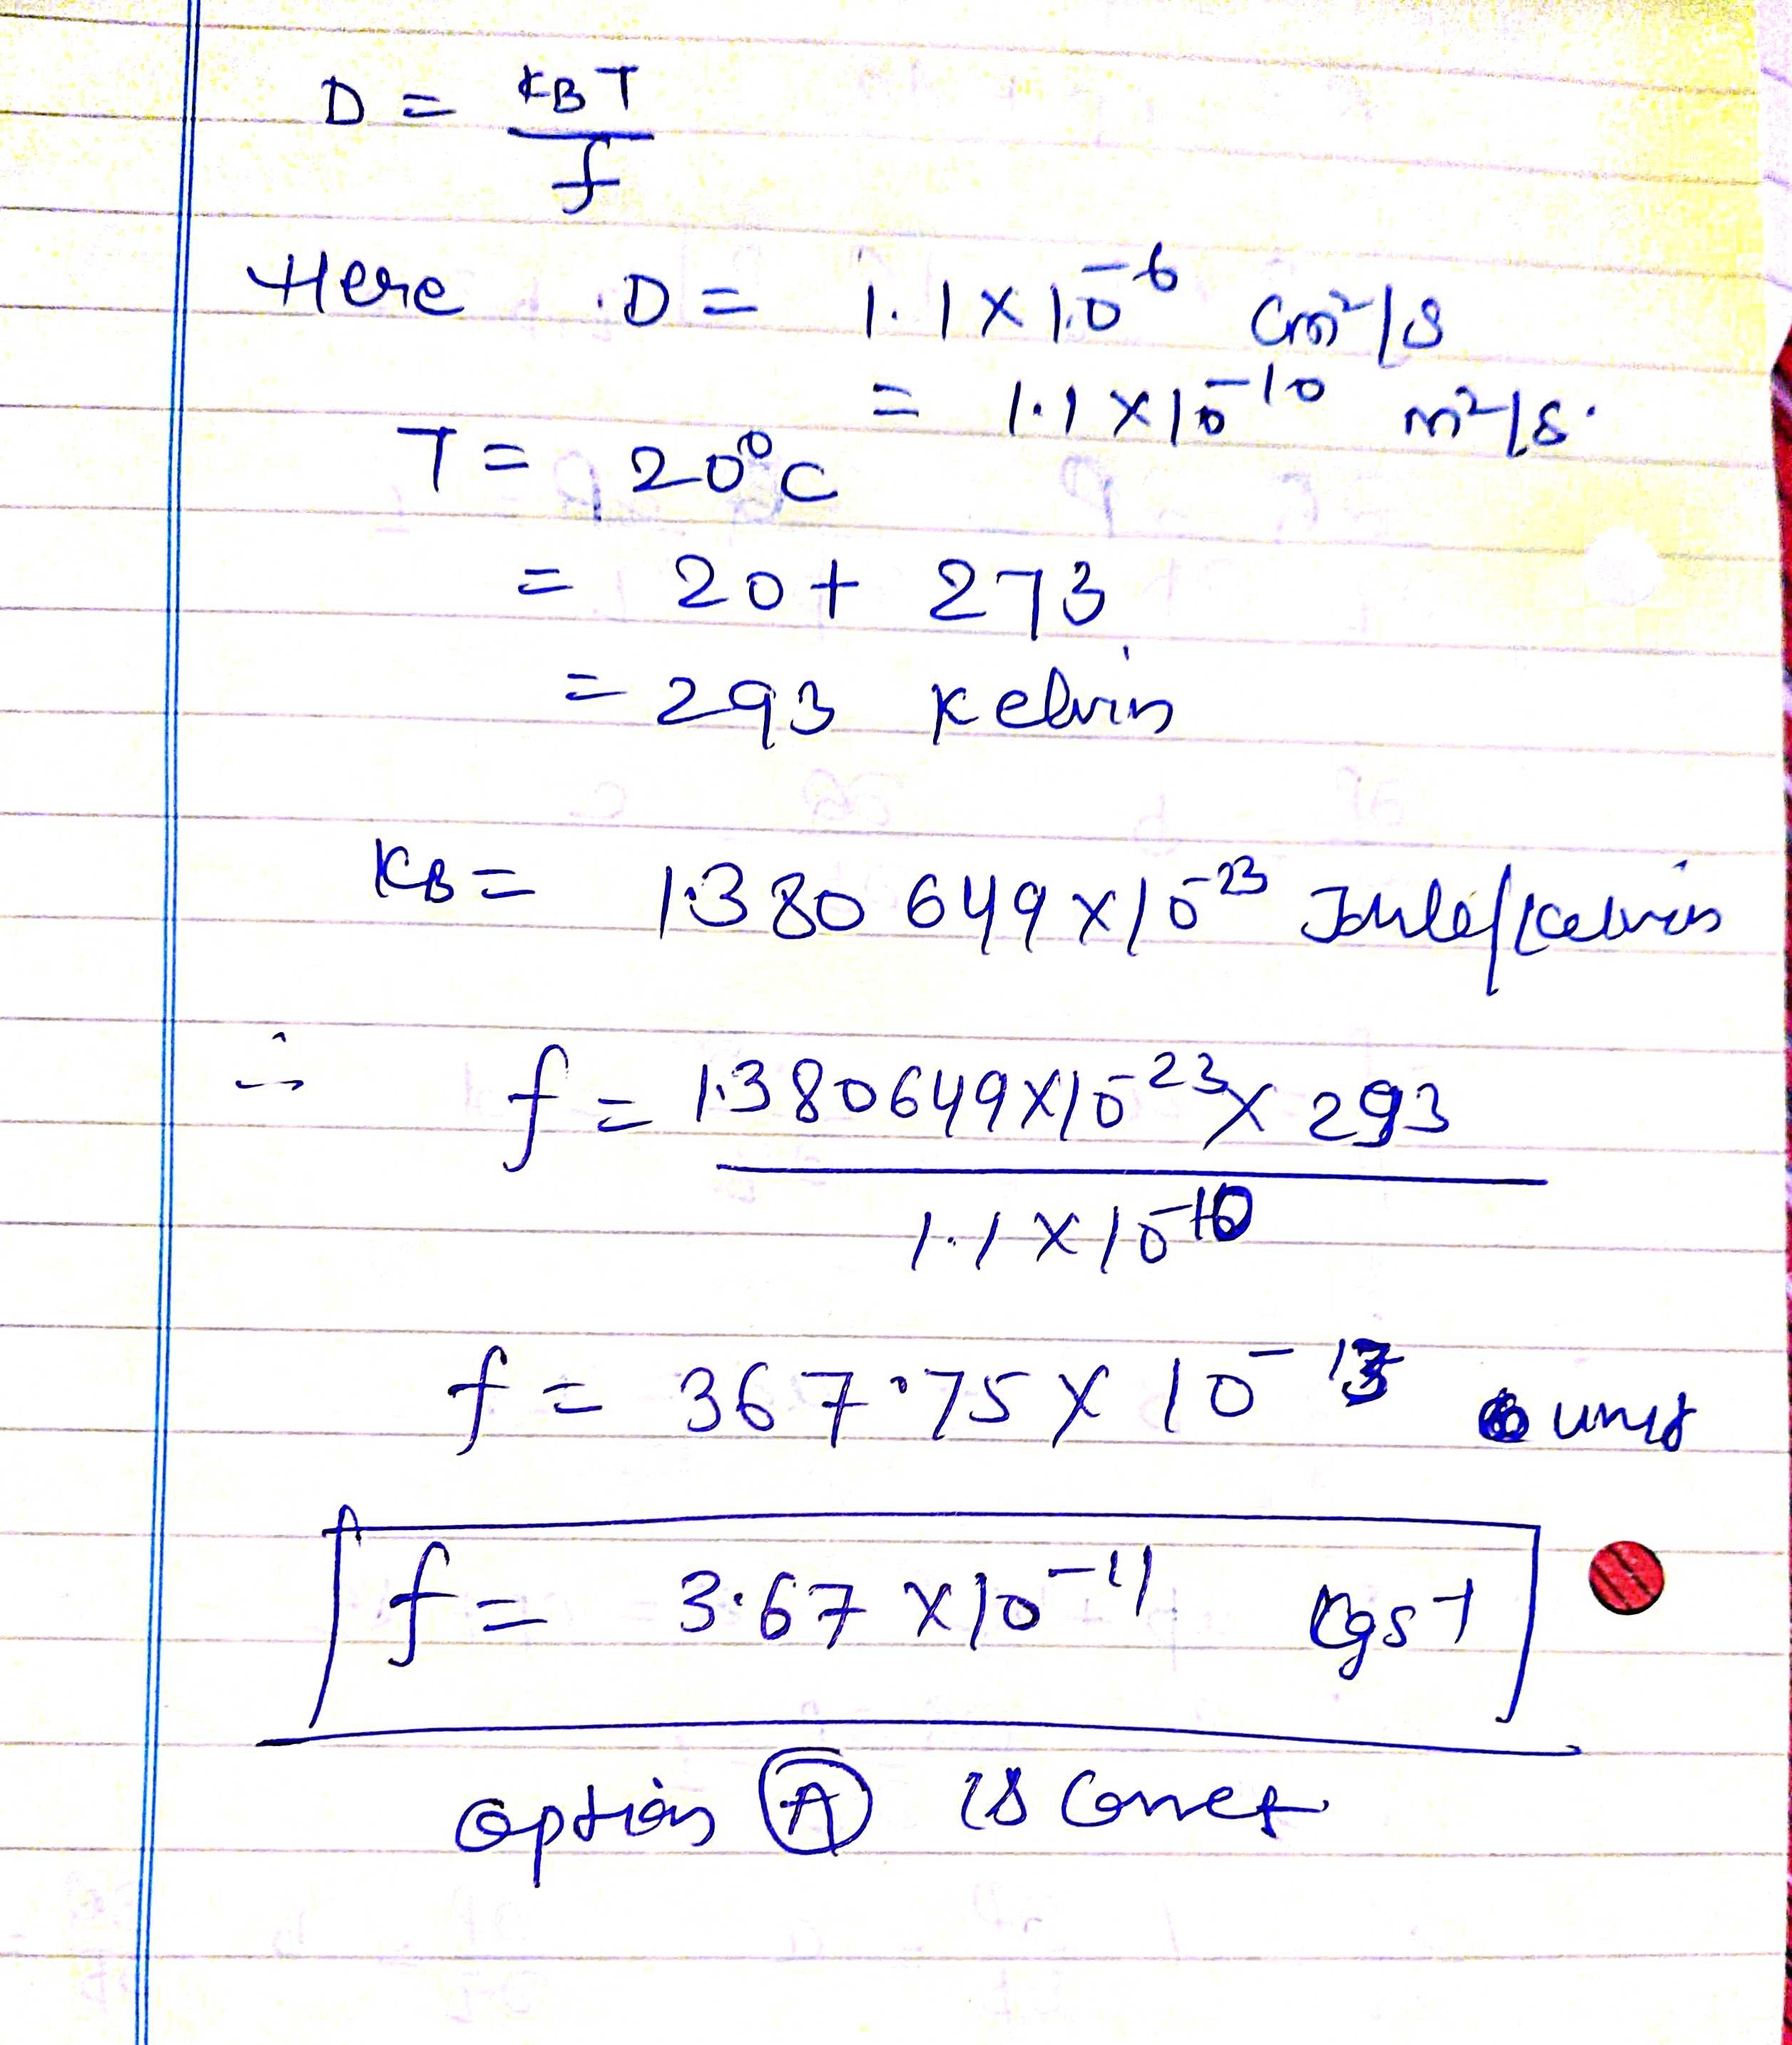 D = KBT / f
Here D = 1.1 × 10⁻⁶ cm²/s
= 1.1 × 10⁻¹⁰ m²/s.
T = 20°C
= 20 + 273
= 293 Kelvin
KB = 1.380 649 × 10⁻²³ Joule/Kelvin
∴ f = 1.380649 × 10⁻²³ × 293 / 1.1 × 10⁻¹⁰
f = 367.75 × 10⁻¹³ unit
f = 3.67 × 10⁻¹¹ kgs⁻¹
option (A) is Correct